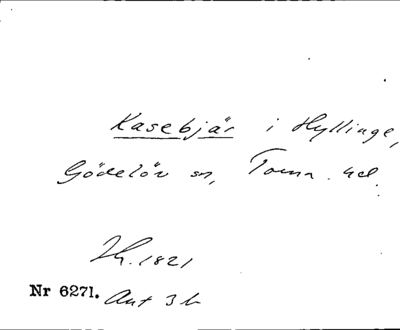 Kasebjär i Hyllinge,
Gödelöv sn, Torna hd.
Ih. 1821
Nr 6271. Ant 3 h